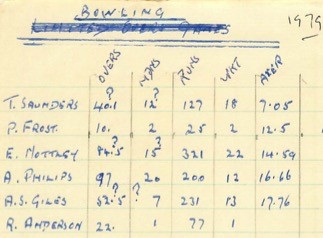 BOWLING
1979
OVERS MDNS RUNS WKT AVER
T. SAUNDERS 40.1 ? 12 ? 127 18 7.05
P. FROST. 10. 2 25 2 12.5
E. MOTTLEY 84.5 ? 15 ? 321 22 14.59
A. PHILIPS 97 20 200 12 16.66
A.S. GILES 52.5 ? 7 ? 231 13 17.76
R. ANDERSON 22. 1 77 1